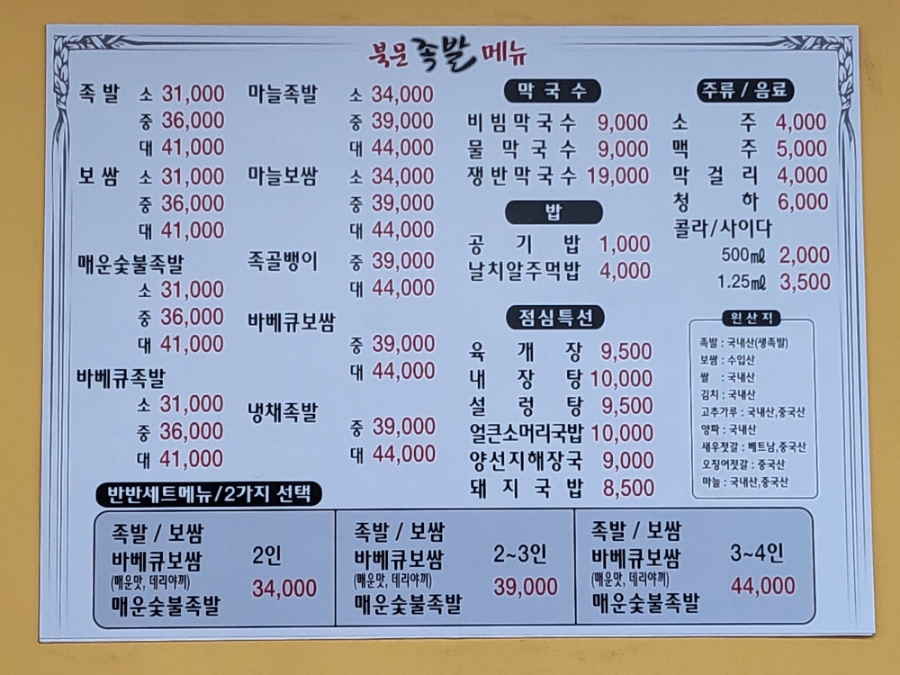 북문 족발 메뉴
족 발 소 31,000
중 36,000
대 41,000
보 쌈 소 31,000
중 36,000
대 41,000
매운숯불족발
소 31,000
중 36,000
대 41,000
바베큐족발
소 31,000
중 36,000
대 41,000
마늘족발 소 34,000
중 39,000
대 44,000
마늘보쌈 소 34,000
중 39,000
대 44,000
족골뱅이 중 39,000
대 44,000
바베큐보쌈
중 39,000
대 44,000
냉채족발
중 39,000
대 44,000
막 국 수
비 빔 막 국 수 9,000
물 막 국 수 9,000
쟁반막국수 19,000
밥
공 기 밥 1,000
날치알주먹밥 4,000
점심특선
육 개 장 9,500
내 장 탕 10,000
설 렁 탕 9,500
얼큰소머리국밥 10,000
양선지해장국 9,000
돼 지 국 밥 8,500
주류 / 음료
소 주 4,000
맥 주 5,000
막 걸 리 4,000
청 하 6,000
콜라/사이다
500㎖ 2,000
1.25㎖ 3,500
원 산 지
족발 : 국내산(생족발)
보쌈 : 수입산
쌀 : 국내산
김치 : 국내산
고추가루 : 국내산,중국산
양파 : 국내산
새우젓갈 : 베트남,중국산
오징어젓갈 : 중국산
마늘 : 국내산,중국산
반반세트메뉴/2가지 선택
족발 / 보쌈
바베큐보쌈 2인
(매운맛, 데리야끼) 34,000
매운숯불족발
족발 / 보쌈
바베큐보쌈 2~3인
(매운맛, 데리야끼) 39,000
매운숯불족발
족발 / 보쌈
바베큐보쌈 3~4인
(매운맛, 데리야끼) 44,000
매운숯불족발